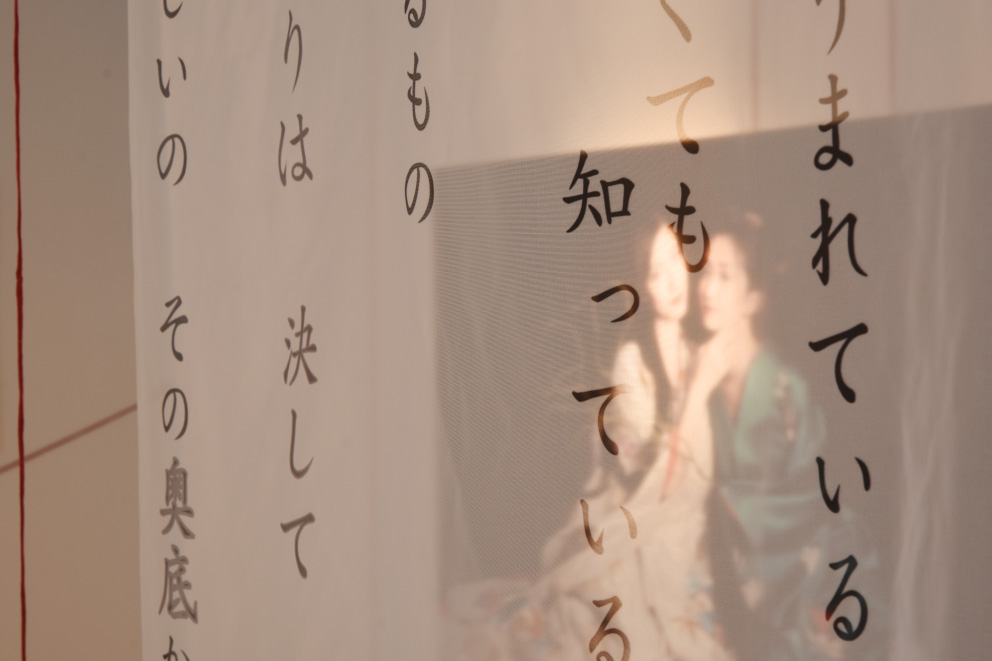 りまれている
くても
知っている
るもの
りは 決して
しいの その奥底か